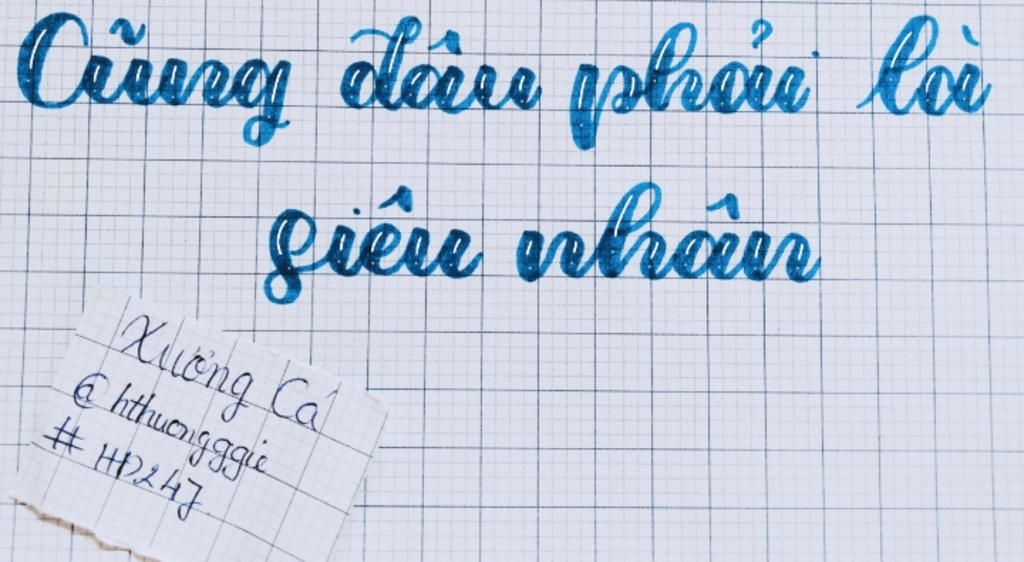 Cũng dâu phải lài
siêu nhân
Xương Cá
@hthuongggie
# HD247